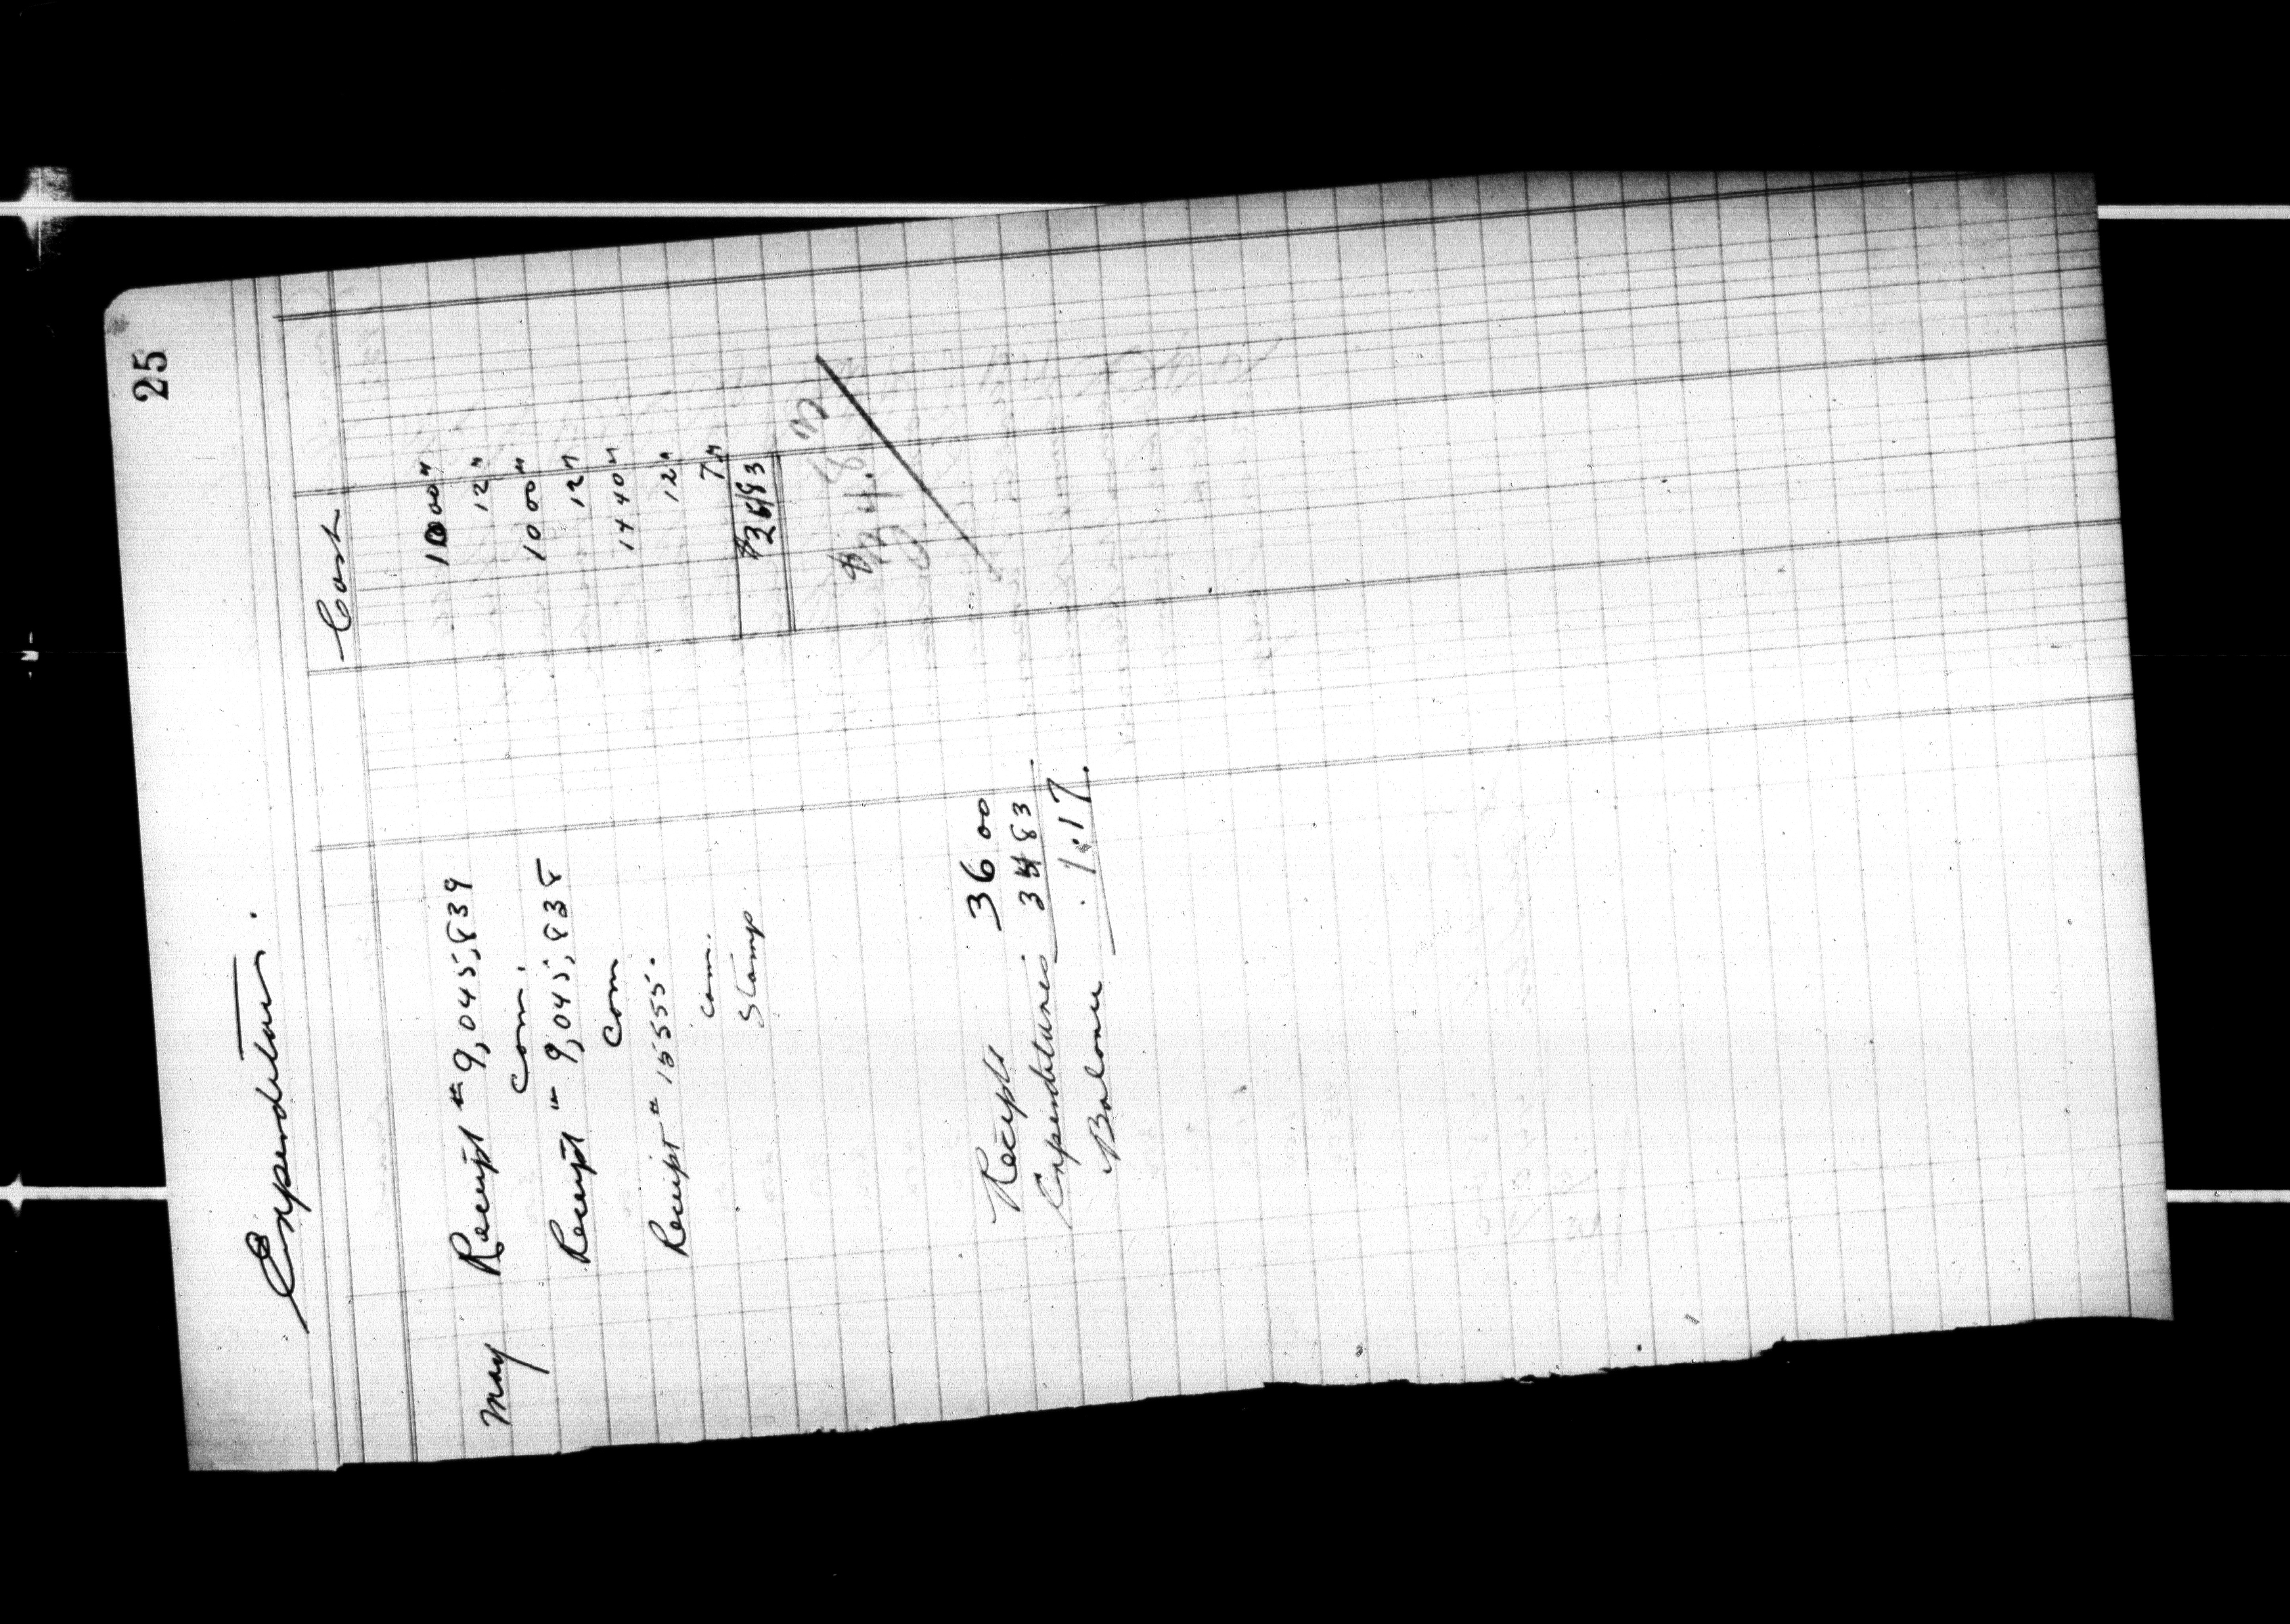 25
Expenditures.
Cost
May Receipt # 9,045,839 10 00 "
Com. 12 "
Receipt " 9,045,838 10 00 "
Com 12 "
Receipt # 15555. 14 40 "
Com. 12 "
Stamp 7 "
$34 83
$34.83
Receipts 36 00
Expenditures 34 83
Balance . 1.17.